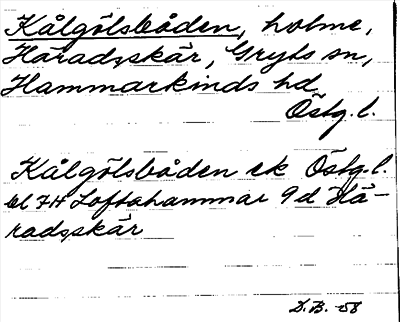 Kålgölsbåden, holme,
Häradsskär, Gryts sn,
Hammarkinds hd
Östg. l.
Kålgölsbåden ek Östg. l.
bl 7H Loftahammar 9 d Hä-
radsskär
D.B. -58